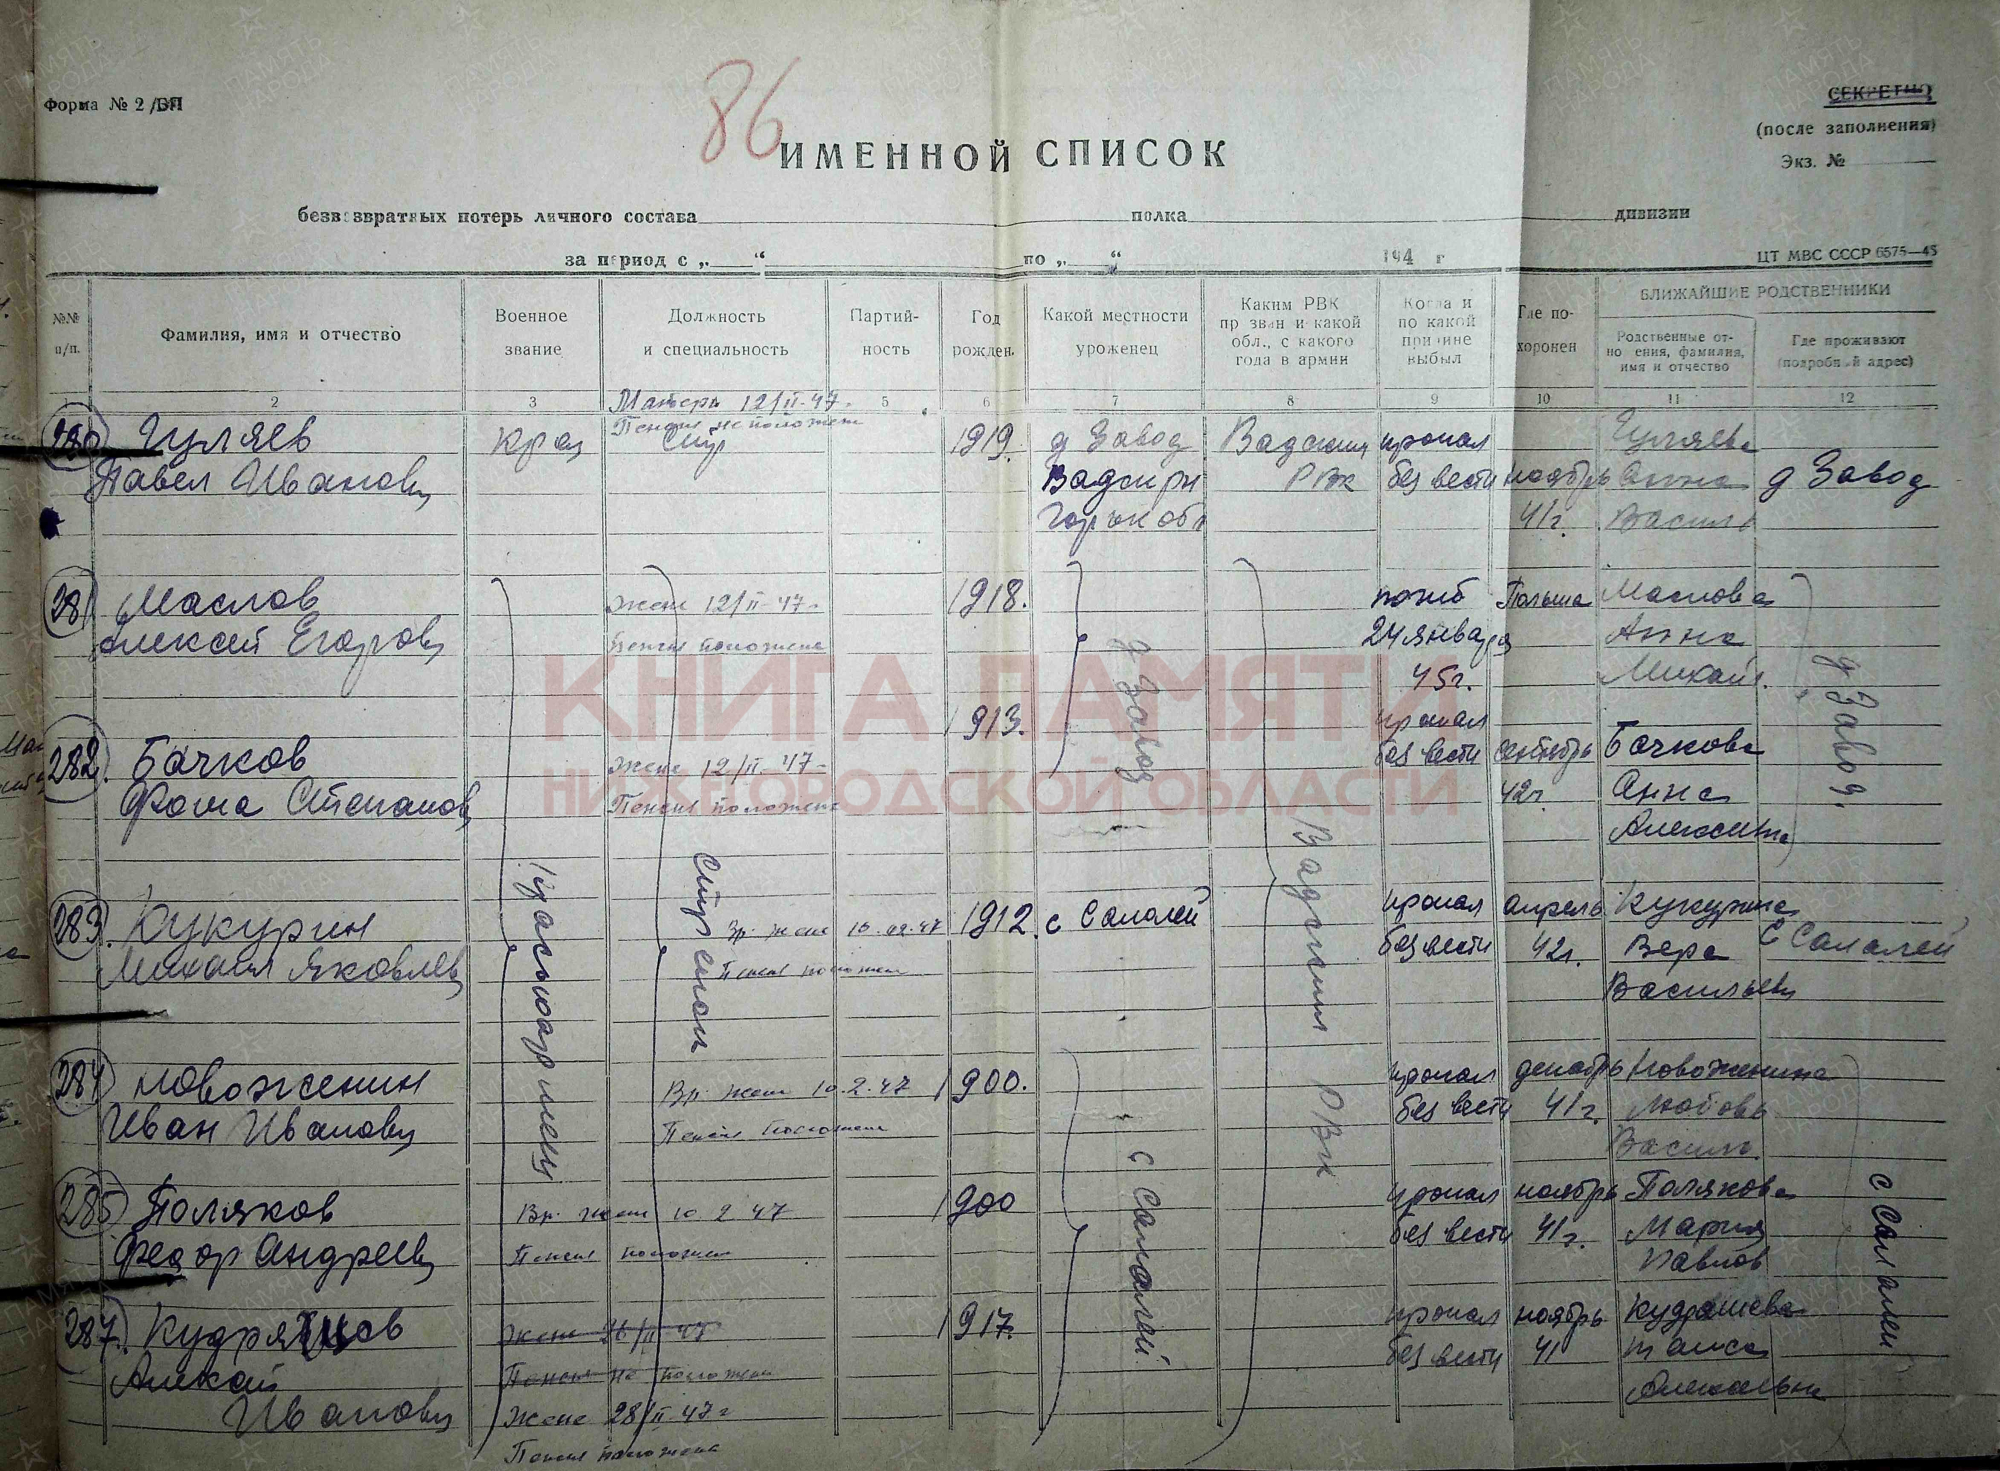 Форма № 2/БП
86
СЕКРЕТНО
(после заполнения)
Экз. №
ИМЕННОЙ СПИСОК
безвозвратных потерь личного состава полка дивизии
за период с „ “ по „ “ 194 г
ЦТ МВС СССР 6575—45
№№ п/п.
Фамилия, имя и отчество
Военное звание
Должность и специальность
Партий-ность
Год рожден.
Какой местности уроженец
Каким РВК призван и какой обл., с какого года в армии
Когда и по какой причине выбыл
Где по-хоронен
БЛИЖАЙШИЕ РОДСТВЕННИКИ
Родственные от-ношения, фамилия, имя и отчество
Где проживают (подробный адрес)
1 2 3 5 6 7 8 9 10 11 12
Матери 12/II-47-
Пенсия не положена
280 Гуляев крац стр 1919. д Завод Вадским пропал Гуляева
Павел Иванович Вадскрн РВк без вести ноябрь Анна д Завод
Горьк обл 41г. Василь
281 Маслов Жене 12/II-47- 1918. погиб Польша Маслова
Алексей Егорович Пенсия положена 24 января Анна
45г. Михайл.
1913. пропал
282. Бачков Жене 12/II-47- без вести сентябрь Бачкова
Фома Степанов Пенсия положена 42г. Анна
Алексеевна
д Завод
д Завод.
Красноармеец
Стр елок
Вадским РВк
283. Кукурин Вр. жене 15.02.47 1912. с Салалей пропал апрель Кукурина
Михаил Яковлев Пенсия положен без вести 42г. Вера с Салалей
Васильев
284 Новоженин Вр. жене 10.2.47 1900. пропал декабрь Новоженина
Иван Иванович Пенсия положена без вести 41г. Любовь
Василь.
285 Поляков Вр. жене 10.2 47 1900 пропал ноябрь Полякова
Федор Андреев Пенсия положен без вести 41г. Мария
Павлов
287. Кудряшов Жене 26/II 47 1917. пропал ноябрь Кудряшева
Алексей Пенсия не положена без вести 41 Таиса
Иванович Жене 28/II 47г Алексеевн
Пенсия положена
с Салалей
с Салалей
КНИГА ПАМЯТИ
НИЖЕГОРОДСКОЙ ОБЛАСТИ
ПАМЯТЬ НАРОДА